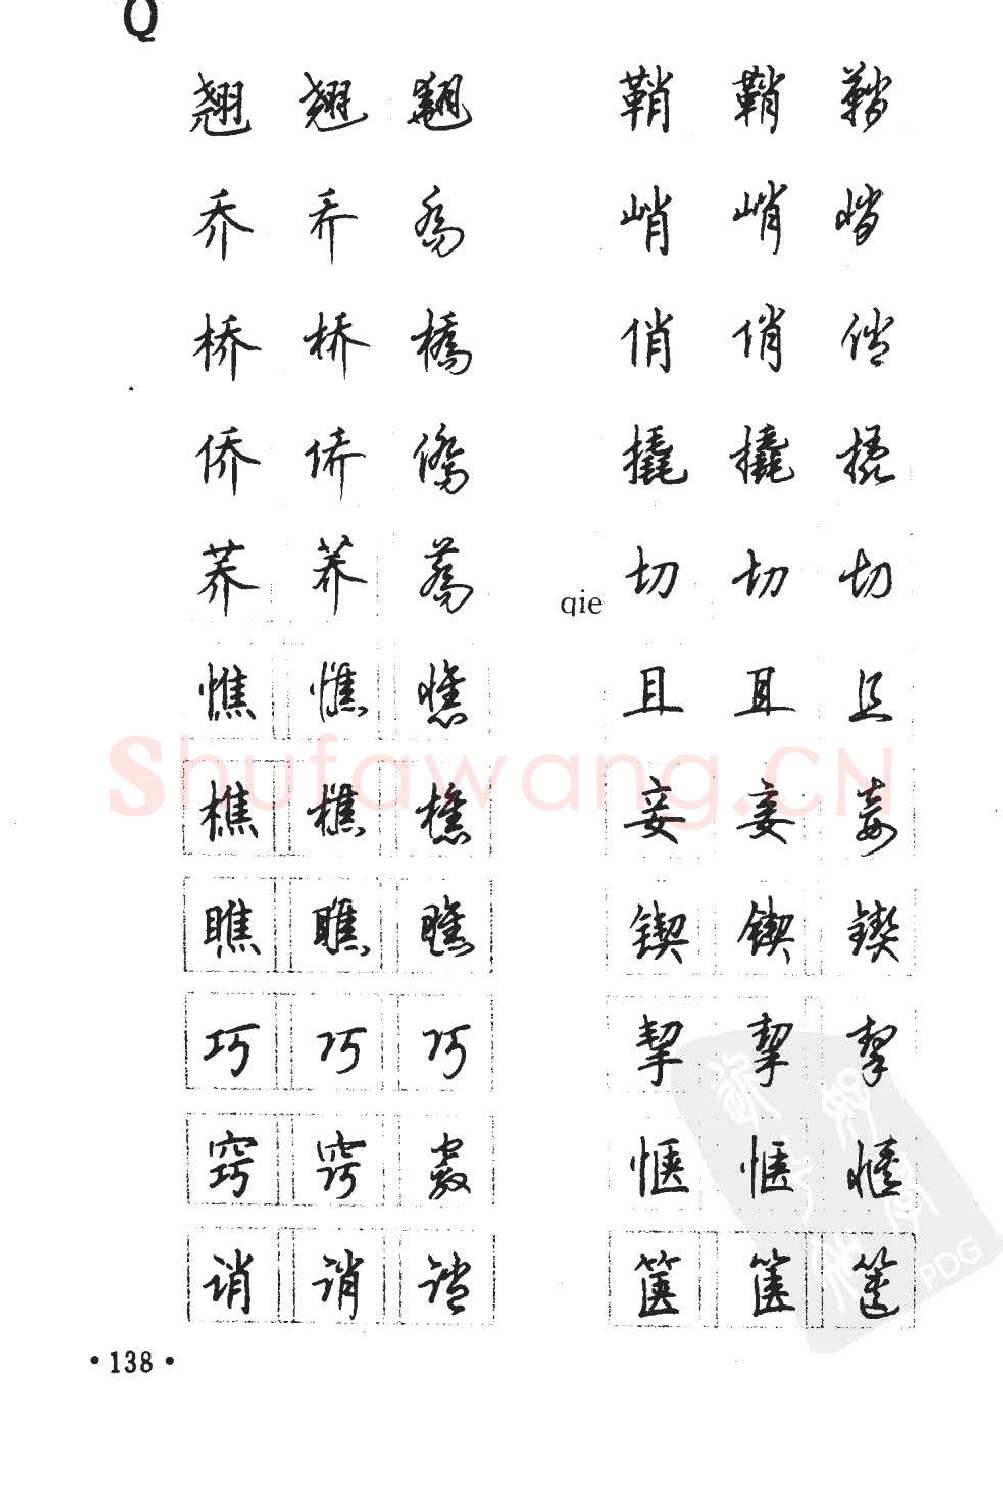 Q
翘 翘 翘
乔 乔 喬
桥 桥 橋
侨 侨 僑
荞 荞 蕎
憔 憔 憔
樵 樵 樵
瞧 瞧 瞧
巧 巧 巧
窍 窍 竅
诮 诮 诮
鞘 鞘 鞘
峭 峭 峭
俏 俏 俏
撬 撬 撬
qie 切 切 切
且 且 且
妾 妾 妾
锲 锲 鍥
挈 挈 挈
惬 惬 愜
箧 箧 篋
·138·
Shufawang.CN
PDG